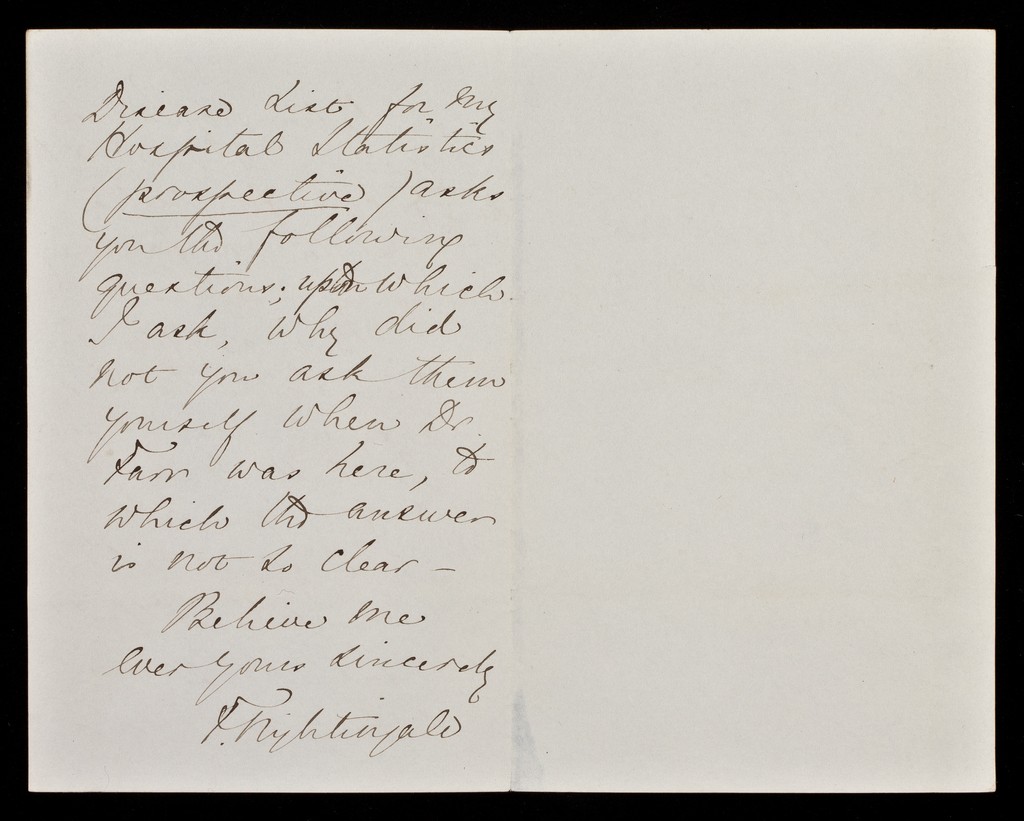 Disease List for my
Hospital Statistics
(prospective) asks
you the following
questions; upon which
I ask, why did
not you ask them
yourself when Dr.
Farr was here, to
which the answer
is not so clear -
Believe me
ever yours sincerely
F. Nightingale